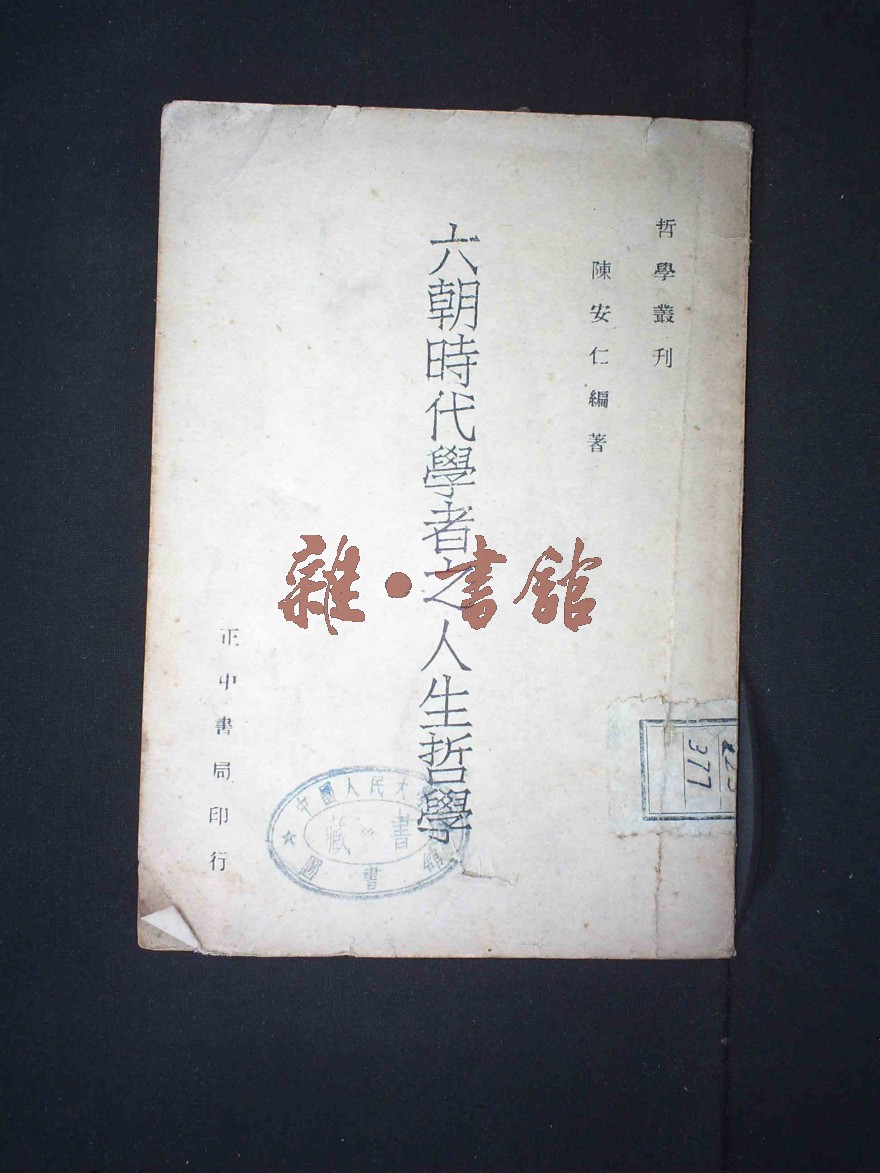 哲學叢刊
陳安仁編著
六朝時代學者之人生哲學
正中書局印行
雜•書館
中國人民大
圖書館
藏書
377